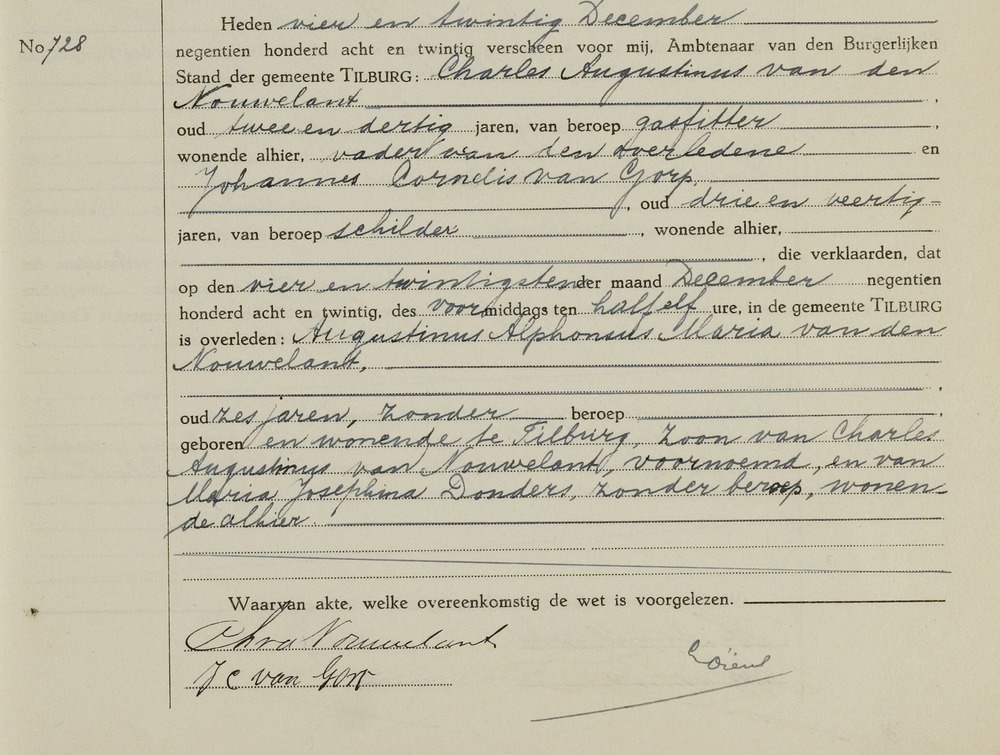 Heden vier en twintig December
No 728
negentien honderd acht en twintig verscheen voor mij, Ambtenaar van den Burgerlijken
Stand der gemeente TILBURG: Charles Augustinus van den
Nouwelant,
oud twee en dertig jaren, van beroep gasfitter,
wonende alhier, vader van den overledene en
Johannes Cornelis van Gorp,
, oud drie en veertig
jaren, van beroep schilder, wonende alhier,
, die verklaarden, dat
op den vier en twintigsten der maand December negentien
honderd acht en twintig, des voormiddags ten half elf ure, in de gemeente TILBURG
is overleden: Augustinus Alphonsus Maria van den
Nouwelant,
,
oud zes jaren, zonder beroep,
geboren en wonende te Tilburg, zoon van Charles
Augustinus van Nouwelant, voornoemd, en van
Maria Josephina Donders, zonder beroep, wonen-
de alhier
Waarvan akte, welke overeenkomstig de wet is voorgelezen.
Nouwelant
J C van Gorp